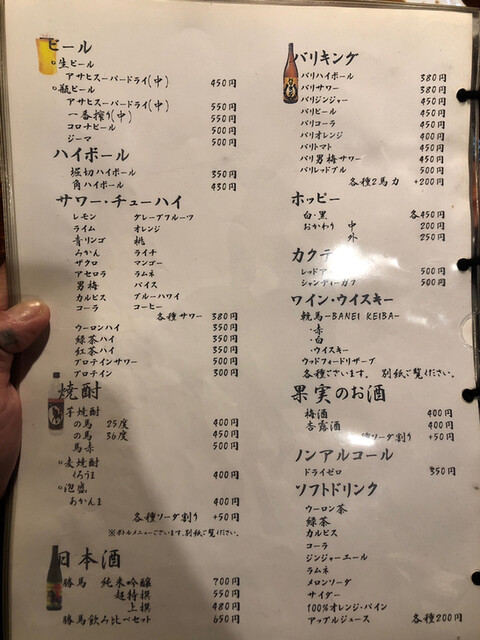 ビール
○生ビール
アサヒスーパードライ(中) 450円
○瓶ビール
アサヒスーパードライ(中) 550円
一番搾り(中) 550円
コロナビール 500円
ジーマ 500円
ハイボール
堀切ハイボール 350円
角ハイボール 430円
サワー・チューハイ
レモン グレープフルーツ
ライム オレンジ
青リンゴ 桃
みかん ライチ
ザクロ マンゴー
アセロラ ラムネ
男梅 バイス
カルピス ブルーハワイ
コーラ コーヒー
各種サワー 380円
ウーロンハイ 350円
緑茶ハイ 350円
紅茶ハイ 350円
プロテインサワー 500円
プロテイン 300円
焼酎
○芋焼酎
の馬 25度 400円
の馬 36度 450円
馬赤 500円
○麦焼酎
くろうま 400円
○泡盛
あかんま 400円
各種ソーダ割り +50円
※ボトルメニューございます。別紙ご覧ください。
日本酒
勝馬 純米吟醸 700円
超特撰 550円
上撰 480円
勝馬飲み比べセット 650円
バリキング
バリハイボール 380円
バリサワー 380円
バリジンジャー 450円
バリビール 450円
バリコーラ 450円
バリオレンジ 400円
バリトマト 450円
バリ男梅サワー 450円
バリレッドブル 500円
各種2馬力 +200円
ホッピー
白・黒 各450円
おかわり 中 200円
外 250円
カクテ
レッドア 500円
シャンディーガフ 500円
ワイン・ウイスキー
輓馬-BANEI KEIBA-
・赤
・白
・ウイスキー
ウッドフォードリザーブ
各種ございます。 別紙ご覧ください。
果実のお酒
梅酒 400円
杏露酒 400円
ソーダ割り +50円
ノンアルコール
ドライゼロ 350円
ソフトドリンク
ウーロン茶
緑茶
カルピス
コーラ
ジンジャーエール
ラムネ
メロンソーダ
サイダー
100%オレンジ・パイン
アップルジュース 各種200円